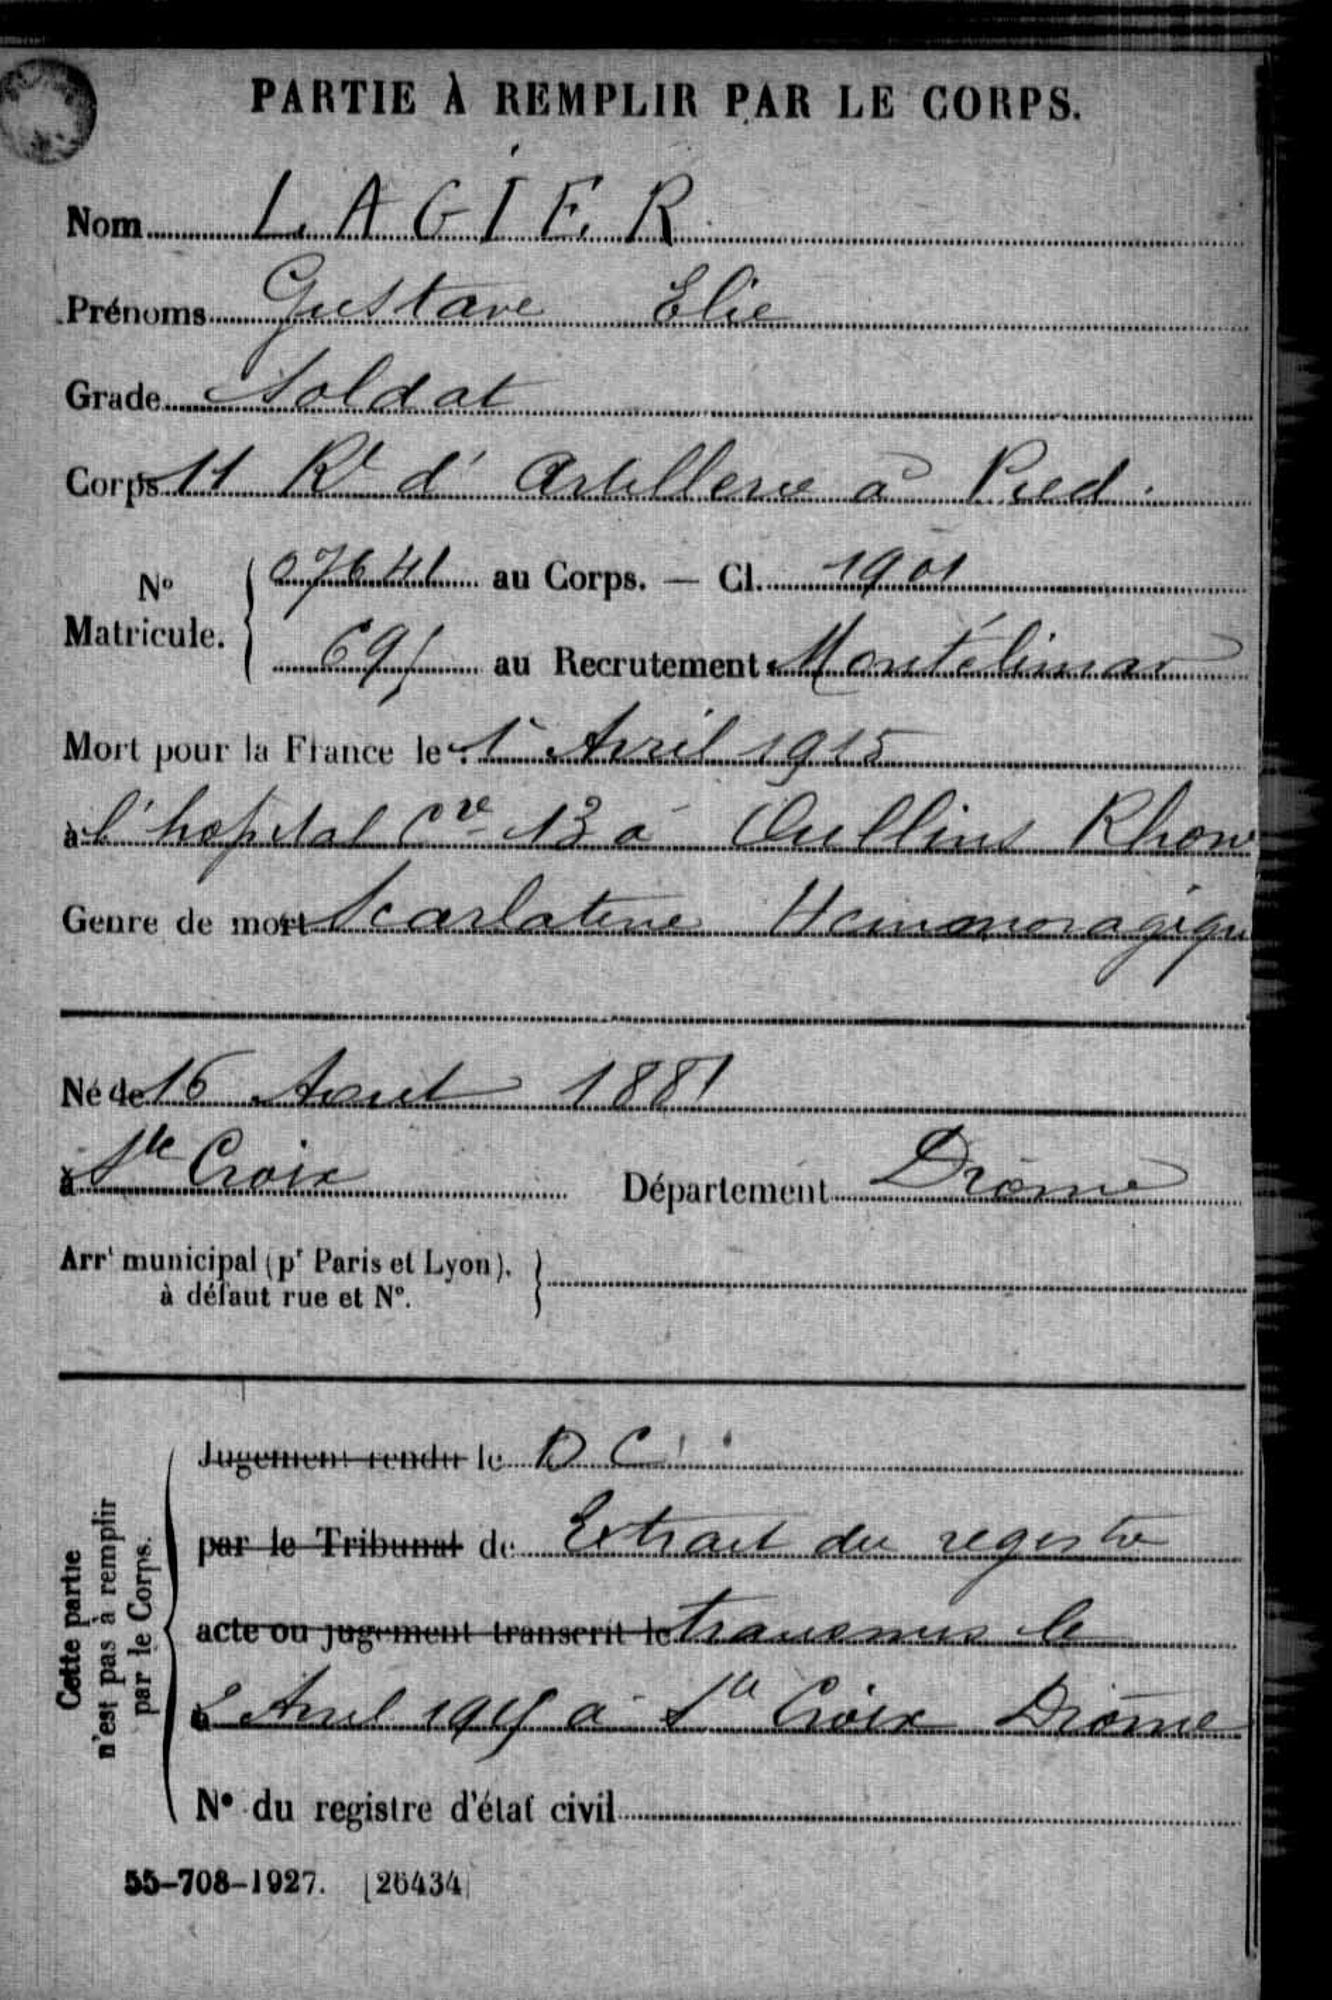 PARTIE À REMPLIR PAR LE CORPS.
Nom LAGIER
Prénoms Gustave Elie
Grade Soldat
Corps 11 Rt d'Artillerie à Pied.
No Matricule. 07641 au Corps. — Cl. 1901
695 au Recrutement Montélimar
Mort pour la France le 1r Avril 1915
à l'hopital Cre 13 à Oullins Rhone
Genre de mort Scarlatine
Né le 16 Aout 1881
à Ste Croix Département Drôme
Arrt municipal (pr Paris et Lyon),
à défaut rue et No.
Cette partie
n'est pas à remplir
par le Corps.
Jugement rendu le D C
par le Tribunal de Extrait du registre
acte ou jugement transcrit le transmis le
à 2 Avril 1915 à Ste Croix Drôme
No du registre d'état civil
55-708-1927. [26434]